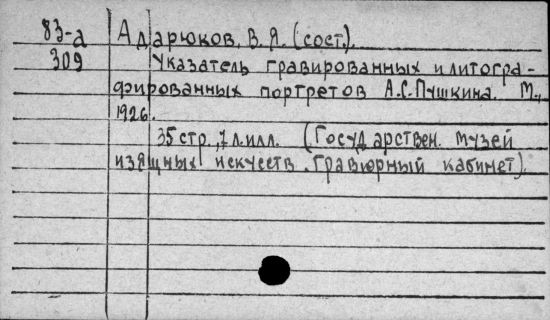 83-а Адарюков, В.Я. (сост.).
309 Указатель гравированных и литогра-
фированных портретов А.С.Пушкина. М.,
1926.
35 стр., 7 л.илл. (Государствен. музей
изящных искусств. Гравюрный кабинет).